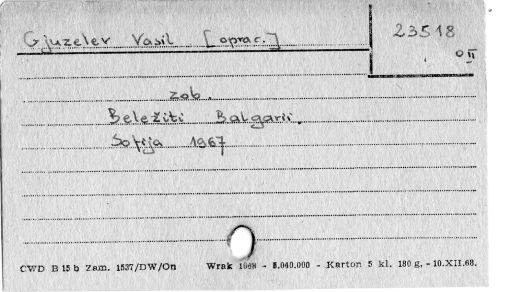 Gjuzelev Vasil [oprac.]
23518
II
zob.
Beležiti Balgarii.
Sofija 1967
CWD B 15 b Zam. 1537/DW/On Wrak 1068 - 5.040.000 - Karton 5 kl. 180 g. - 10.XII.68.